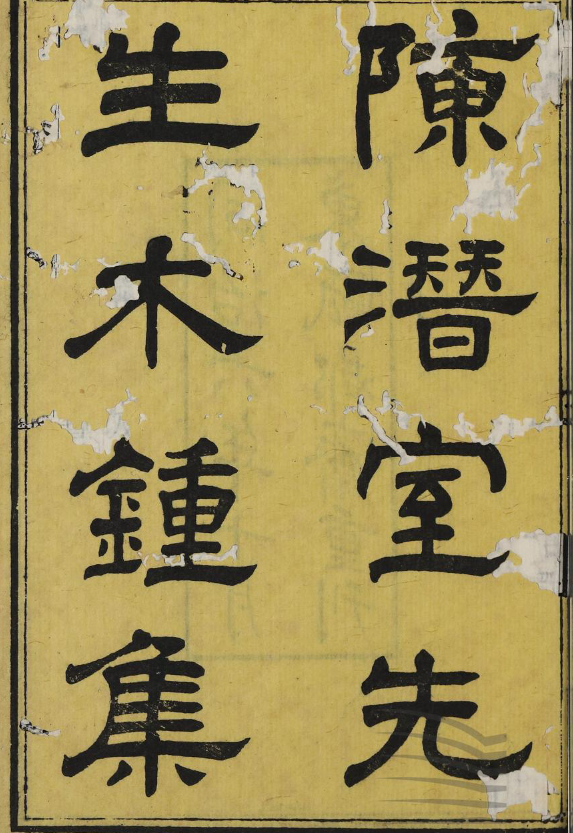 陳潛室先
生木鍾集